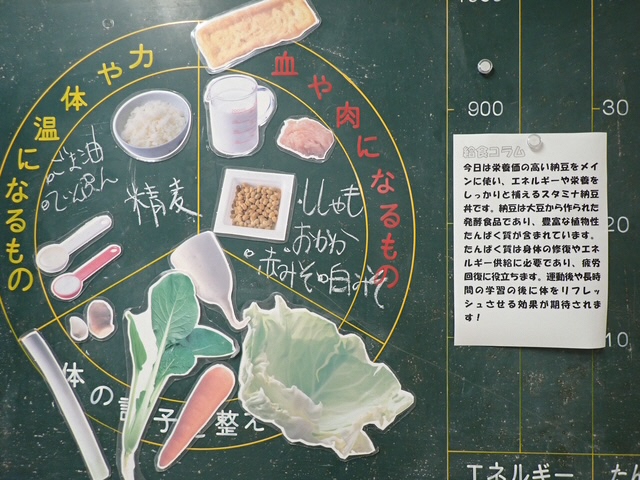 力や体温になるもの
血や肉になるもの
ごま油
でんぷん
精麦
ししゃも
おかか
赤みそ
白みそ
体の調子を整え
900
30
20
10
給食コラム
今日は栄養価の高い納豆をメイ
ンに使い、エネルギーや栄養を
しっかりと補えるスタミナ納豆
丼です。納豆は大豆から作られた
発酵食品であり、豊富な植物性
たんぱく質が含まれています。
たんぱく質は身体の修復やエネ
ルギー供給に必要であり、疲労
回復に役立ちます。運動後や長時
間の学習の後に体をリフレッ
シュさせる効果が期待されま
す！
エネルギー
たん